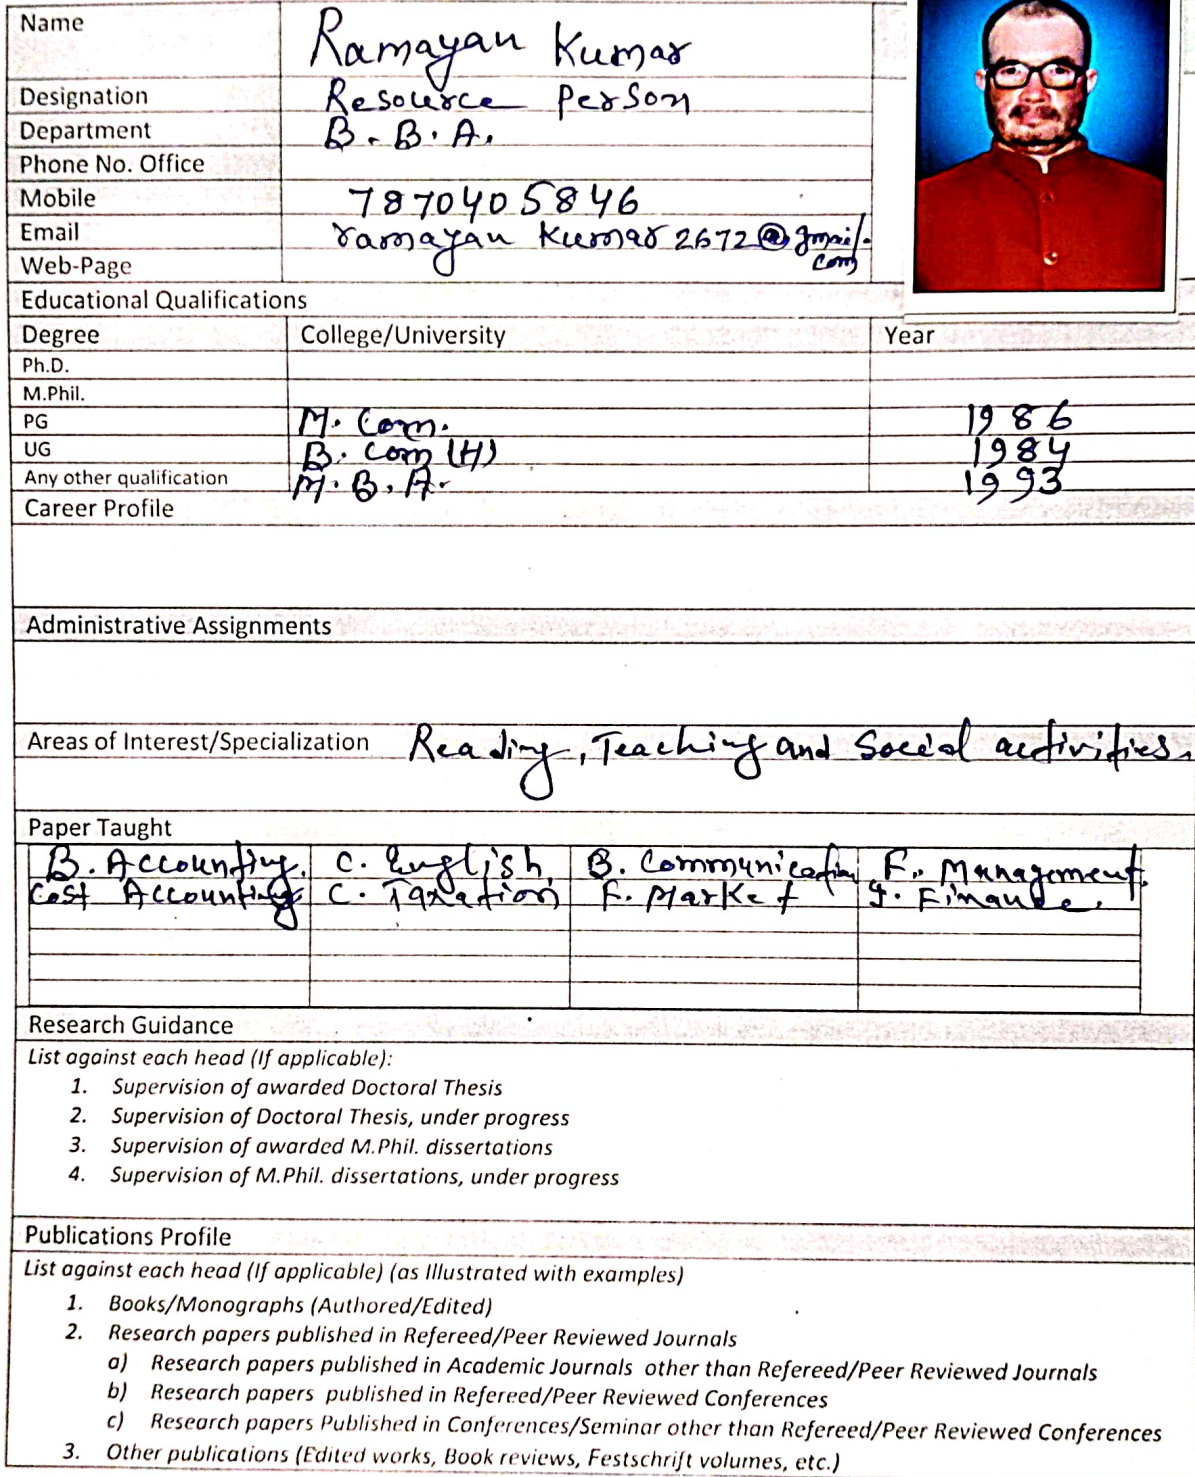 Name Ramayan Kumar
Designation Resource Person
Department B. B. A.
Phone No. Office
Mobile 7870405846
Email ramayan kumar 2672@gmail.
com
Web-Page
Educational Qualifications
Degree College/University Year
Ph.D.
M.Phil.
PG M. Com. 1986
UG B. Com (H) 1984
Any other qualification M. B. A. 1993
Career Profile
Administrative Assignments
Areas of Interest/Specialization Reading, Teaching and Social activities.
Paper Taught
B. Accounting, C. English, B. Communication F. Management.
Cost Accounting C. Taxation F. Market I. Finance.
Research Guidance
List against each head (If applicable):
1. Supervision of awarded Doctoral Thesis
2. Supervision of Doctoral Thesis, under progress
3. Supervision of awarded M.Phil. dissertations
4. Supervision of M.Phil. dissertations, under progress
Publications Profile
List against each head (If applicable) (as Illustrated with examples)
1. Books/Monographs (Authored/Edited)
2. Research papers published in Refereed/Peer Reviewed Journals
a) Research papers published in Academic Journals other than Refereed/Peer Reviewed Journals
b) Research papers published in Refereed/Peer Reviewed Conferences
c) Research papers Published in Conferences/Seminar other than Refereed/Peer Reviewed Conferences
3. Other publications (Edited works, Book reviews, Festschrift volumes, etc.)